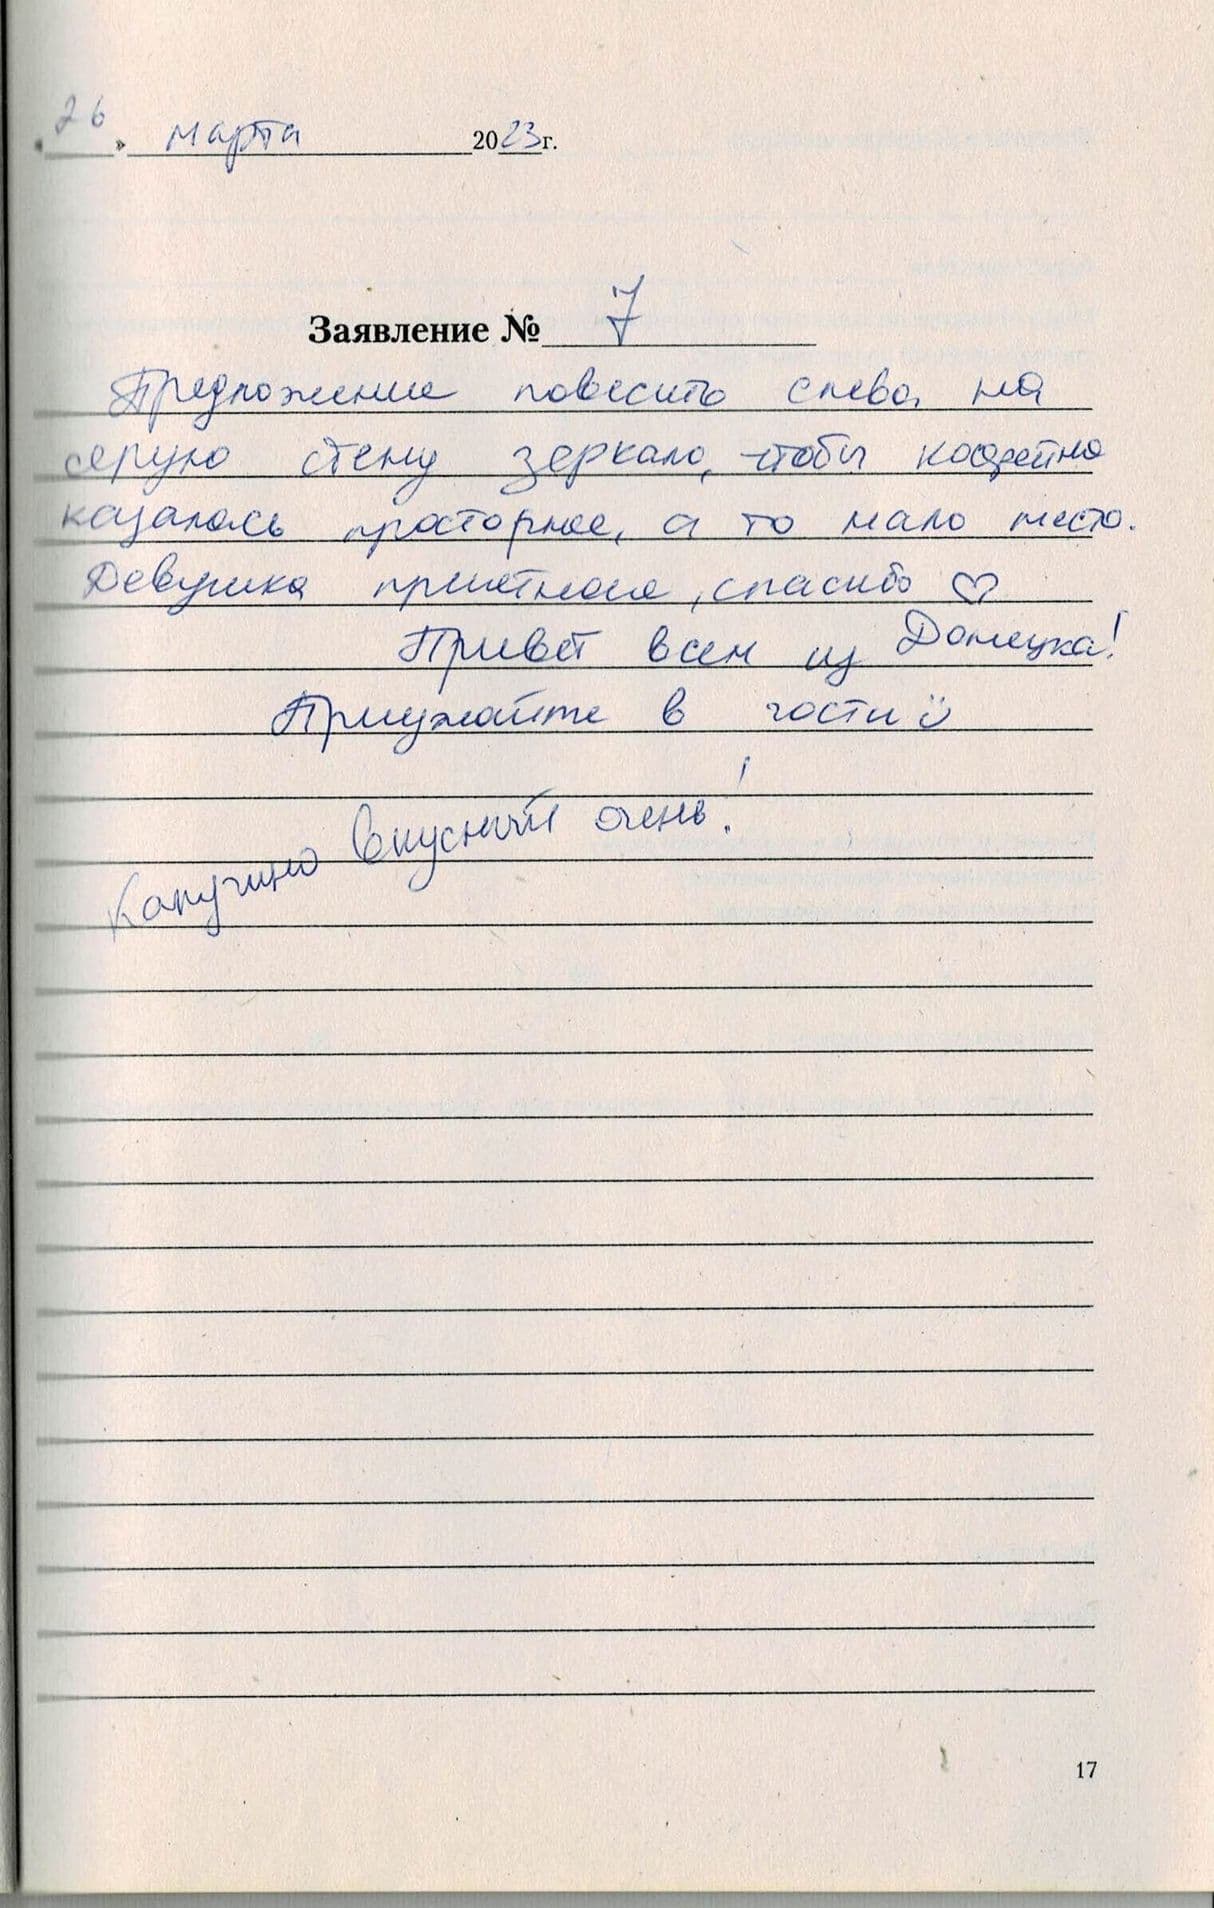 «26» марта 2023г.
Заявление № 7
Предложение повесить слева на
серую стену зеркало, чтобы кофейня
казалась просторнее, а то мало места.
Девушка приятная, спасибо ♡
Привет всем из Донецка!
Приезжайте в гости
Капучино вкусный очень!
17